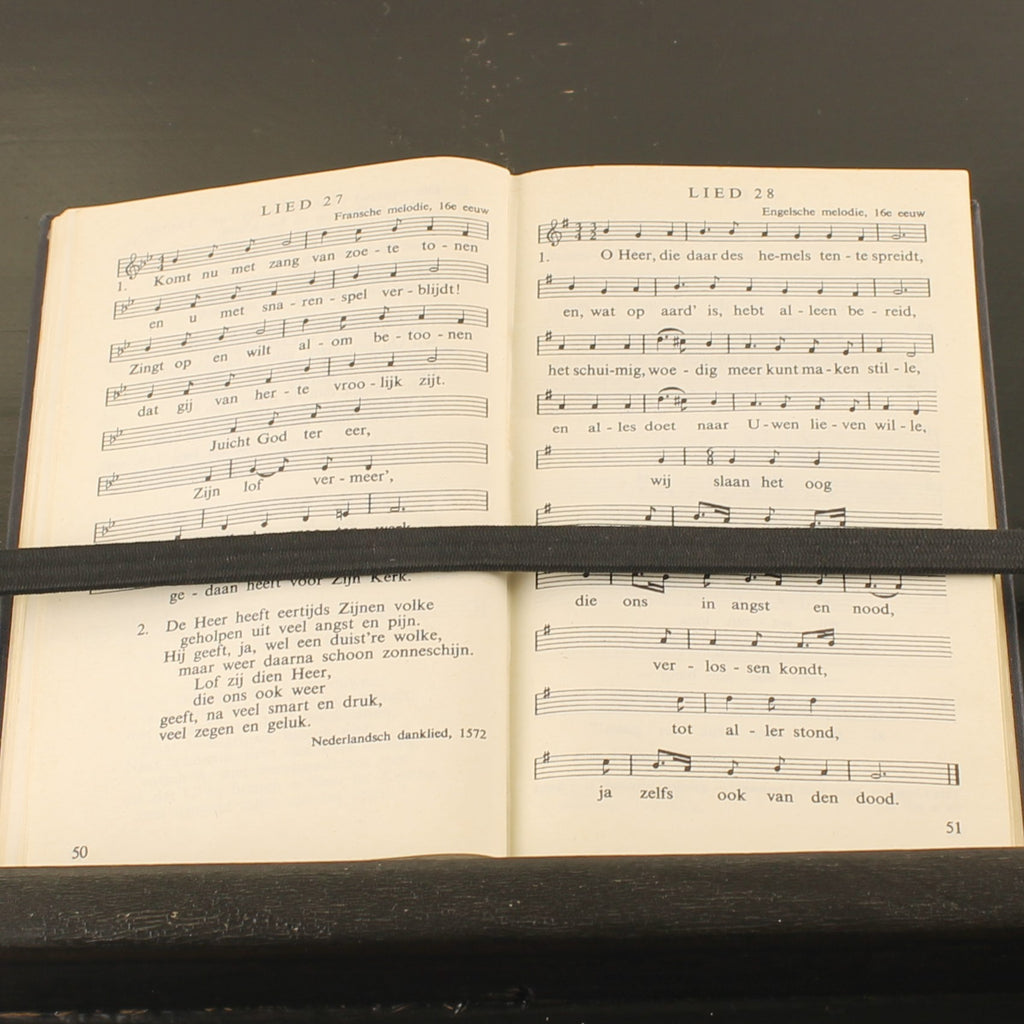 LIED 27
Fransche melodie, 16e eeuw
1. Komt nu met zang van zoe - te to - nen
en u met sna - ren - spel ver - blijdt!
Zingt op en wilt al - om be - too - nen
dat gij van her - te vroo - lijk zijt.
Juicht God ter eer,
Zijn lof ver - meer',
ge - daan heeft voor Zijn Kerk.
2. De Heer heeft eertijds Zijnen volke
geholpen uit veel angst en pijn.
Hij geeft, ja, wel een duist're wolke,
maar weer daarna schoon zonneschijn.
Lof zij dien Heer,
die ons ook weer
geeft, na veel smart en druk,
veel zegen en geluk.
Nederlandsch danklied, 1572
50
LIED 28
Engelsche melodie, 16e eeuw
1. O Heer, die daar des he-mels ten - te spreidt,
en, wat op aard' is, hebt al - leen be - reid,
het schui-mig, woe - dig meer kunt ma - ken stil - le,
en al - les doet naar U - wen lie - ven wil - le,
wij slaan het oog
die ons in angst en nood,
ver - los - sen kondt,
tot al - ler stond,
ja zelfs ook van den dood.
51